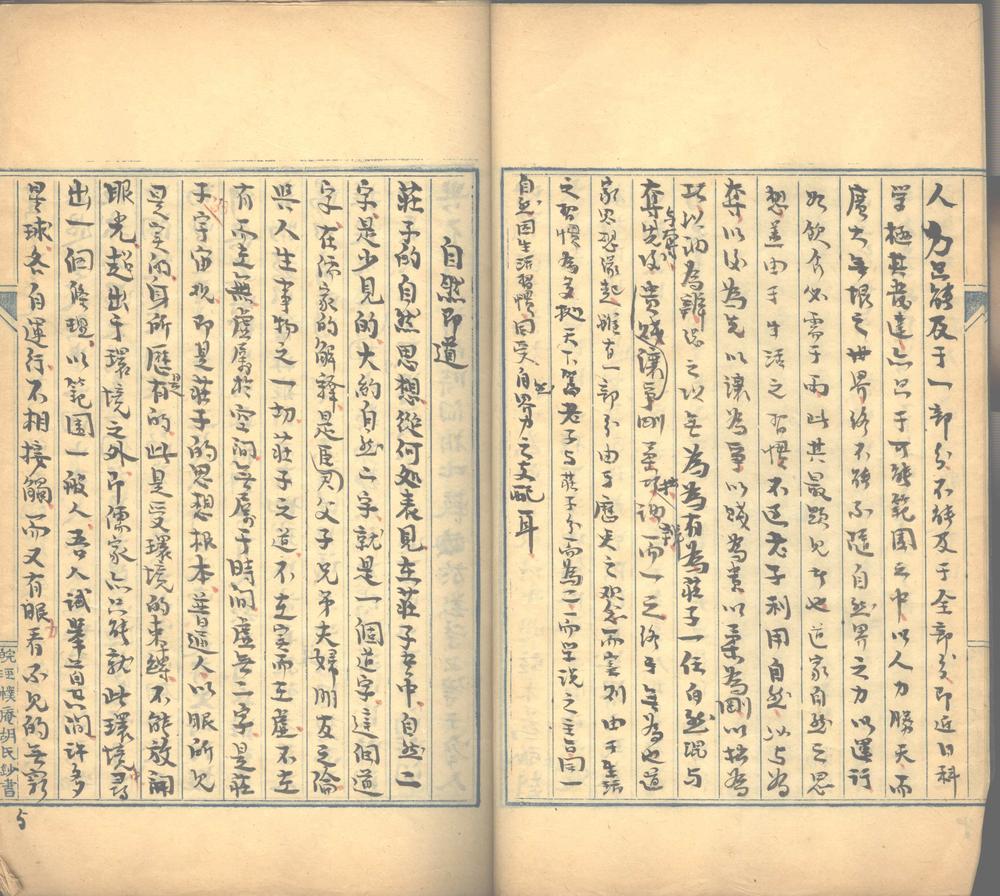 人力只能及于一部分不能及于全部分即近日科
学極其發達亦只于可能範围之中以人力勝天而
廣大無垠之世界終不能不隨自然界之力以運行
如飲食必需于雨此其最顯见者也道家自然之思
想盖由于生活之習慣不过老子利用自然以与为
奪以後为先以讓为爭以賤为貴以柔为剛以拙为
巧以訥为辯总之以無为为有为莊子一任自然混与
奪先後貴賤讓爭剛柔巧拙訥辯而一之终于無为也道
家思想缘起雖有一部分由于歷史之观念而實則由于生活
之習慣为多故天下篇老子与莊子分而为二而学说之主旨同一
自然因生活習慣同受自然界力之支配耳
自然即道
莊子的自然思想從何处表見在莊子書中自然二
字是少見的大約自然二字就是一個道字這個道
字在儒家的解釋是君臣父子兄弟夫婦朋友之倫
與人生事物之一切莊子之道不在實而在虚不在
有而在無虚属於空间無属于時间虚無二字是莊
子宇宙观即是莊子的思想根本普通人以眼所见
是實的身所歷是有的此是受環境的束縛不能放開
眼光超出于環境之外即儒家亦只能就此環境尋
出一個條理以範围一般人吾人試舉首只問許多
星球各自運行不相接觸而又有眼看不见的無窮
皖涇樸庵胡氏鈔書
5